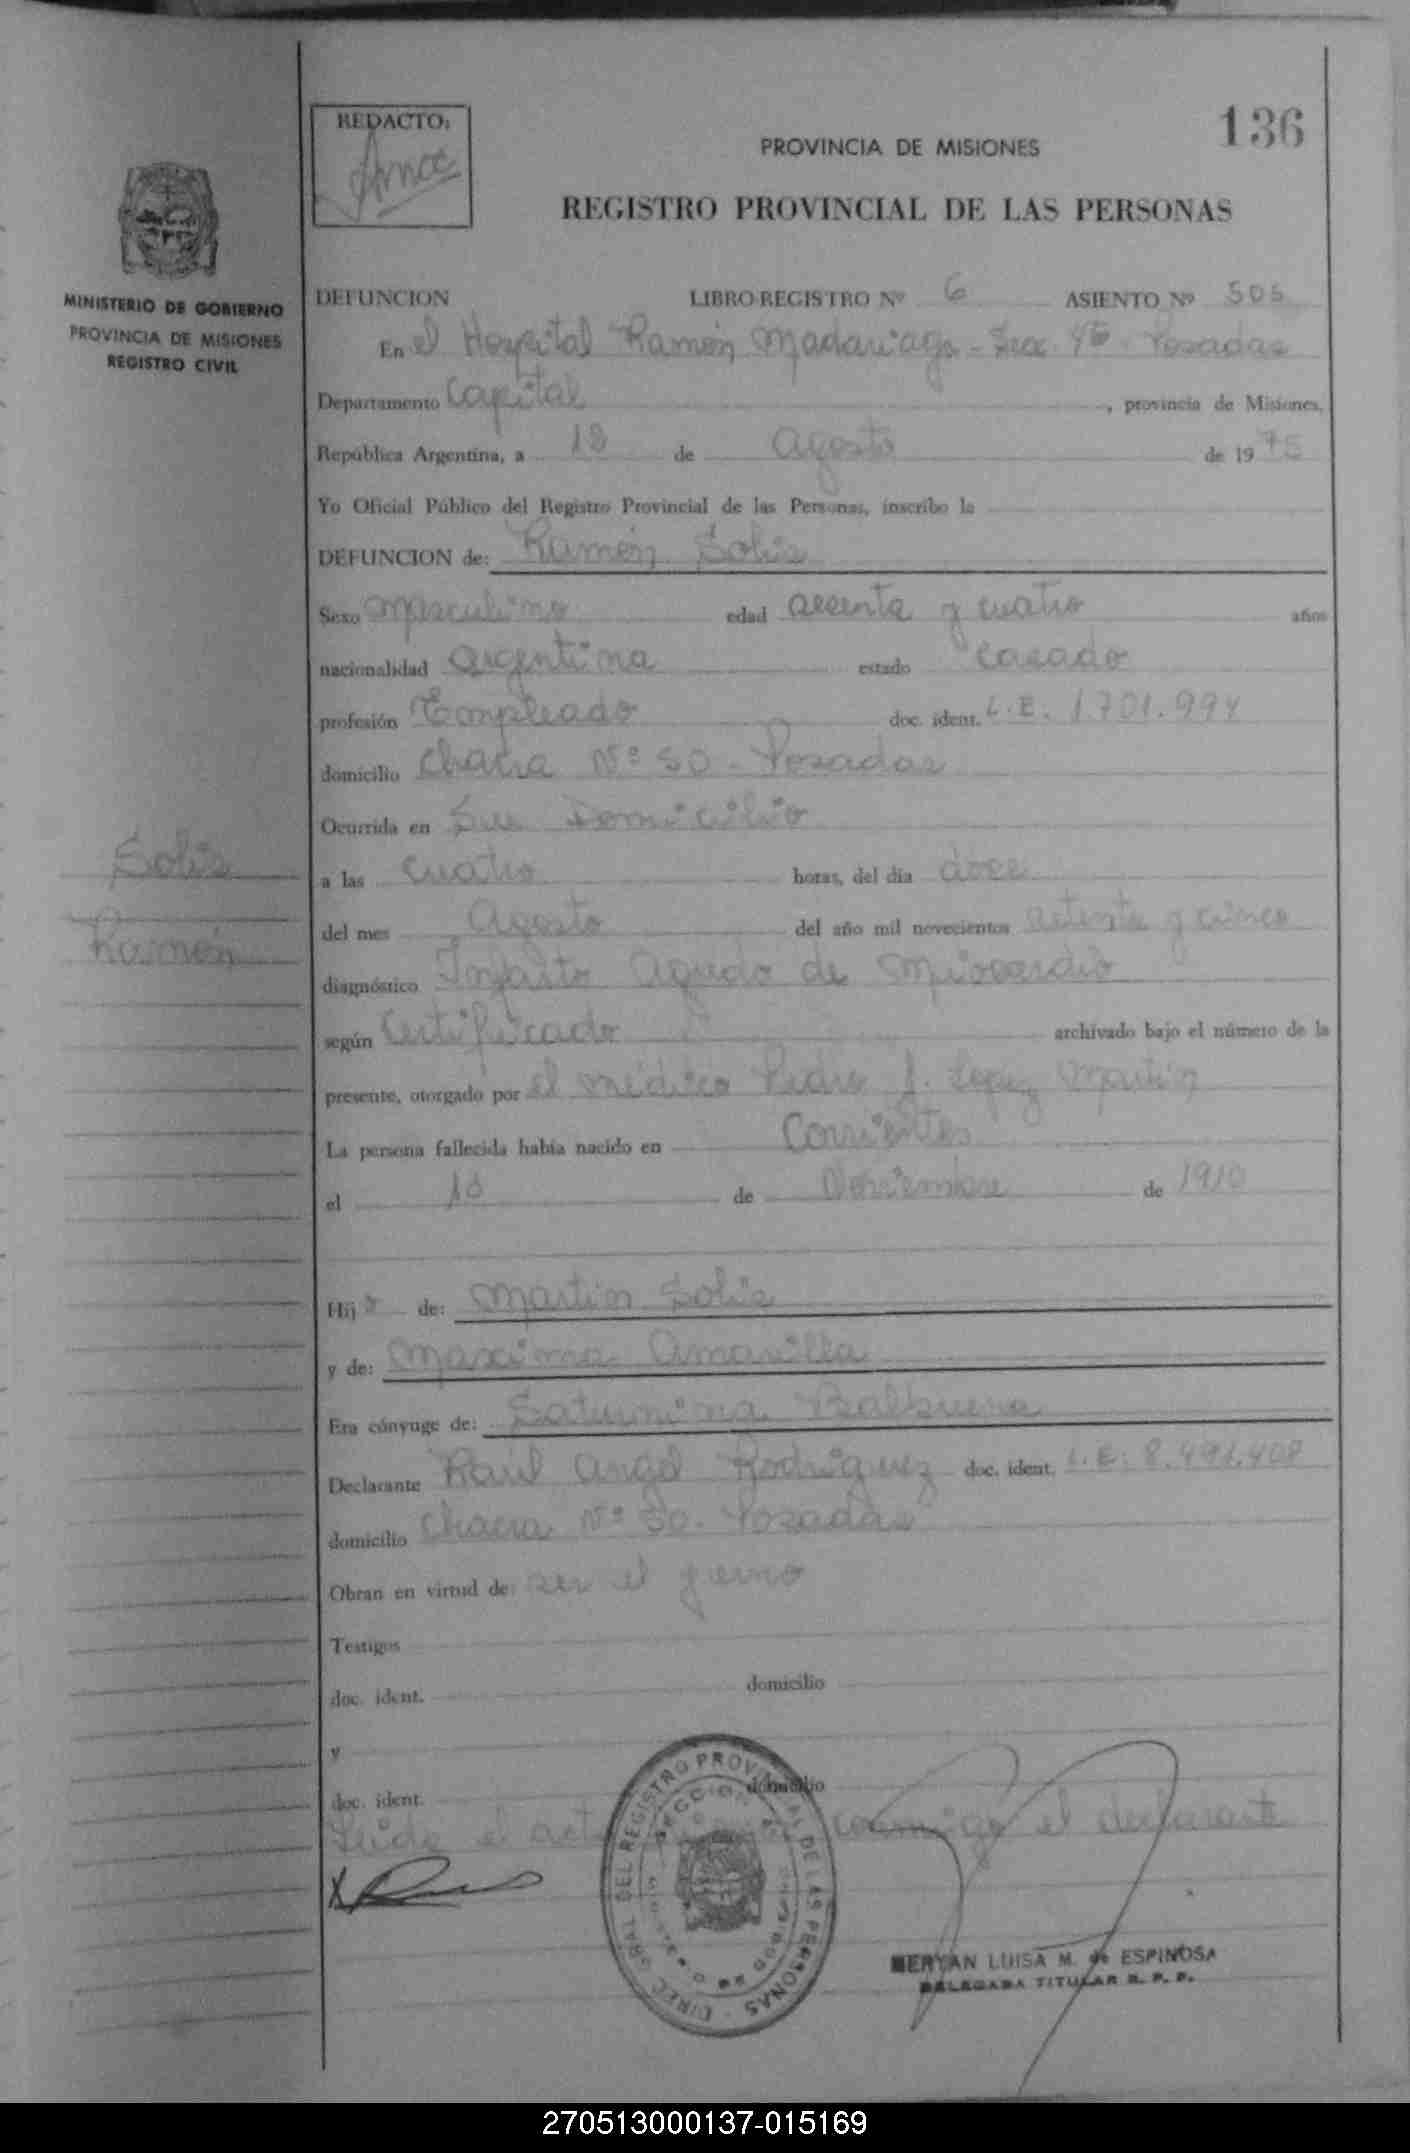 136
REDACTO:
PROVINCIA DE MISIONES
REGISTRO PROVINCIAL DE LAS PERSONAS
MINISTERIO DE GOBIERNO
PROVINCIA DE MISIONES
REGISTRO CIVIL
DEFUNCION LIBRO-REGISTRO Nº 6 ASIENTO Nº 505
En el Hospital Ramón Madariaga - Secc. 4ta - Posadas
Departamento Capital, provincia de Misiones,
República Argentina, a 18 de Agosto de 1975
Yo Oficial Público del Registro Provincial de las Personas, inscribo la
DEFUNCION de: Ramón Solis
Sexo masculino edad sesenta y cuatro años
nacionalidad argentina estado casado
profesión Empleado doc. ident. L.E. 1.701.994
domicilio Chacra Nº 50 - Posadas
Ocurrida en Su Domicilio
Solis
a las cuatro horas, del día doce
Ramón
del mes Agosto del año mil novecientos setenta y cinco
diagnóstico Infarto Agudo de Miocardio
según Certificado archivado bajo el número de la
presente, otorgado por el médico Pedro J. Lopez Martin
La persona fallecida había nacido en Corrientes
el 10 de Noviembre de 1910
Hijo de: Martin Solis
y de: Maxima Amarilla
Era cónyuge de: Saturnina Balbuena
Declarante Raúl Angel Rodriguez doc. ident. L.E. 8.491.408
domicilio Chacra Nº 50 - Posadas
Obran en virtud de: ser el yerno
Testigos
doc. ident. domicilio
y
doc. ident. domicilio
Leida el acta conmigo el declarante
DIREC. GRAL. DEL REGISTRO PROVINCIAL DE LAS PERSONAS
SECCION
MERYAN LUISA M. de ESPINOSA
DELEGADA TITULAR R. P. P.
270513000137-015169